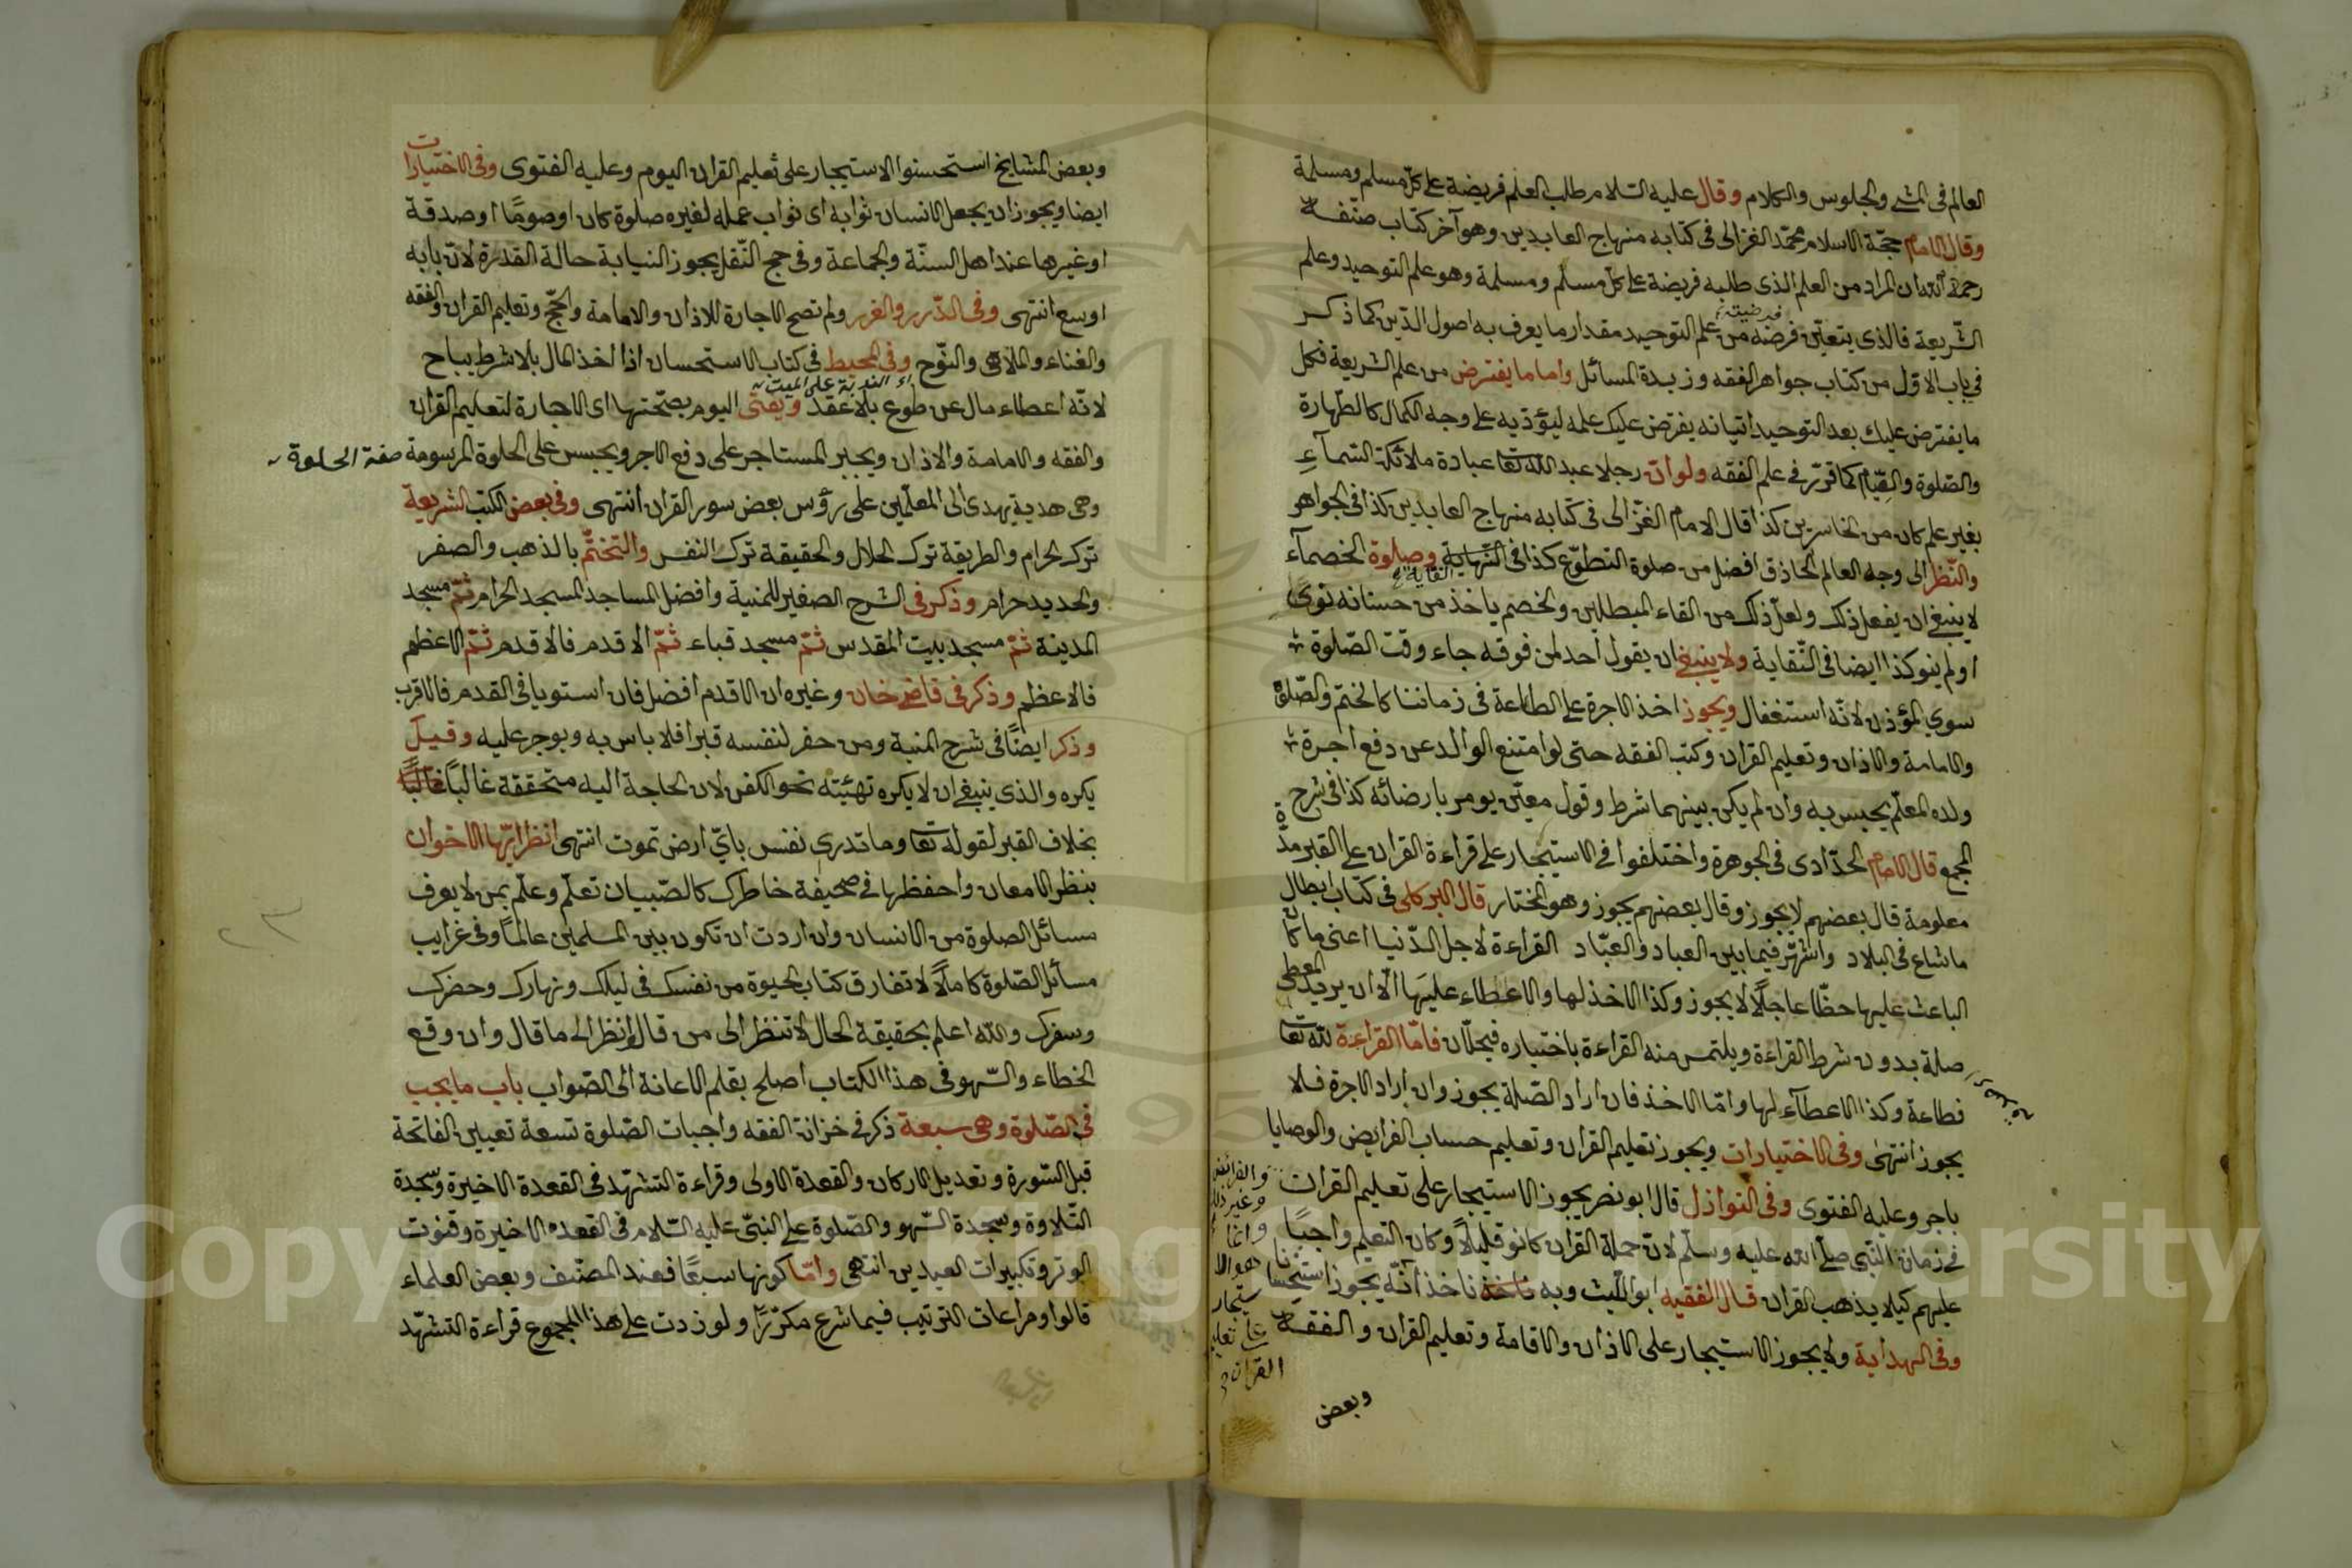 العالم فى المشى والجلوس والكلام وقال عليه السلام طلب العلم فريضة على كل مسلم ومسلمة
وقال الامام حجّة الاسلام محمّد الغزالى فى كتابه منهاج العابدين وهو آخر كتاب صنّفه
رحمة الله ان المراد من العلم الذى طلبه فريضة على كل مسلم ومسلمة وهو علم التوحيد وعلم
الشّريعة فالذى يتعيّن فرضه من علم التوحيد مقدار ما يعرف به اصول الدّين كما ذكر
فرضيته
فى باب الاوّل من كتاب جواهر الفقه وزبدة المسائل واما ما يفترض من علم الشريعة فكل
ما يفترض عليك بعد التوحيد اتيانه يفترض عليك علمه ليؤديه على وجه الكمال كالطّهارة
والصّلوة والصّيام كما قرّر فى علم الفقه ولو انّ رجلا عبد الله تعا عبادة ملائكة السّمآء
بغير علم كان من الخاسرين كذا قال الامام الغزّالى فى كتابه منهاج العابدين كذا فى الجواهر
والنّظر الى وجه العالم الحاذق افضل من صلوة التطوّع كذا فى النّهاية وصلوة الخصمآء
النقاية
لا ينبغى ان يفعل ذلك ولعلّ ذلك من القاء المبطلين والخصم ياخذ من حسناته نوى
او لم ينو كذا ايضا فى النّقاية ولا ينبغى ان يقول احد لمن فوقه جاء وقت الصّلوة
سوى المؤذن لانّه استغفال ويجوز اخذ الاجرة على الطاعة فى زماننا كالختم والصّلوة
والامامة والاذان وتعليم القران وكتب الفقه حتى لو امتنع الوالد عن دفع اجرة
ولده المعلّم يحبس به وان لم يكن بينهما شرط وقول معيّن يومر بارضائه كذا فى شرح
المجمع قال الامام الحدّادى فى الجوهرة واختلفوا فى الاستيجار على قراءة القران على القبر مدّة
معلومة قال بعضهم لا يجوز وقال بعضهم يجوز وهو المختار قال البركلى فى كتاب ابطال
ما شاع فى البلاد واشتهر فيما بين العباد والعبّاد القراءة لاجل الدّنيا اعنى ما كان
الباعث عليها حظّا عاجلًا لا يجوز وكذا الاخذ لها والاعطاء عليها الّا ان يريد المعطى
صلة بدون شرط القراءة ويلتمس منه القراءة باختياره فيحلّان فامّا القراءة لله تعا
فطاعة وكذا الاعطآء لها وامّا الاخذ فان اراد الصّلة يجوز وان اراد الاجرة فلا
يجوز انتهى وفى الاختيارات ويجوز تعليم القران وتعليم حساب الفرايض والوصايا
باجر وعليه الفتوى وفى النوازل قال ابو نصر يجوز الاستيجار على تعليم القران
فى زمان النّبى صلّى الله عليه وسلّم لانّ حملة القران كانو قليلاً وكان التعليم واجبًا
عليهم كيلا يذهب القران قال الفقيه ابو اللّيث وبه ناخذ ناخذ انّه يجوز استحسانا
وفى الهداية ولا يجوز الاستيجار على الاذان والاقامة وتعليم القران والفقه
والفرائض
وغير ذلك
وانما
هو الا
ستيجار
على تعليم
القران
وبعض
وبعض المشايخ استحسنوا الاستيجار على تعليم القران اليوم وعليه الفتوى وفى الاختيارات
ايضا ويجوز ان يجعل الانسان ثوابه اى ثواب عمله لغيره صلوة كان او صومًا او صدقة
او غيرها عند اهل السنّة والجماعة وفى حج النّفل يجوز النيابة حالة القدرة لانّ بابه
اوسع انتهى وفى الدّرر والغرر ولم تصح الاجارة للاذان والامامة والحجّ وتعليم القران والفقه
والغناء والملاهى والنّوح وفى المحيط فى كتاب الاستحسان اذا اخذ المال بلا شرط يباح
اء الندبة على الميت
لانّه اعطاء مال عن طوع بلا عقد ويفتى اليوم بصحّتها اى الاجارة لتعليم القران
والفقه والامامة والاذان ويجبر المستاجر على دفع الاجر ويحبس على الحلوة المرسومة
صفة الحلوة
وهى هدية يهدى الى المعلّمين على رؤس بعض سور القران انتهى وفى بعض الكتب الشريعة
ترك الحرام والطريقة ترك الحلال والحقيقة ترك النفس والتختّم بالذهب والصفر
والحديد حرام وذكر فى الشرح الصغير للمنية وافضل المساجد المسجد الحرام ثمّ مسجد
المدينة ثمّ مسجد بيت المقدس ثمّ مسجد قباء ثمّ الاقدم فالاقدم ثمّ الاعظم
فالاعظم وذكر فى قاضى خان وغيره ان الاقدم افضل فان استويا فى القدم فالاقرب
وذكر ايضًا فى شرح المنية ومن حفر لنفسه قبرا فلا باس به ويوجر عليه وقيل
يكره والذى ينبغى ان لا يكره تهيئته نحو الكفن لان الحاجة اليه متحققة غالبًا غالبًا
بخلاف القبر لقوله تعا وما تدرى نفس باىّ ارض تموت انتهى انظر ايّها الاخوان
بنظر الامعان واحفظها فى صحيفة خاطرك كالصّبيان تعلّم وعلّم بمن لا يعرف
مسائل الصلوة من الانسان وان اردت ان تكون بين المسلمين عالمًا وفى غرايب
مسائل الصّلوة كاملًا لا تفارق كتاب الحيوة من نفسك فى ليلك ونهارك وحضرك
وسفرك والله اعلم بحقيقة الحال لا تنظر الى من قال وانظر الى ما قال وان وقع
الخطاء والسّهو فى هذا الكتاب اصلح بقلم الاعانة الى الصّواب باب ما يجب
فى الصّلوة وهى سبعة ذكر فى خزانة الفقه واجبات الصّلوة تسعة تعيين الفاتحة
قبل السّورة وتعديل الاركان والقعدة الاولى وقراءة التشهّد فى القعدة الاخيرة وسجدة
التّلاوة وسجدة السّهو والصّلوة على النبىّ عليه السّلام فى القعدة الاخيرة وقنوت
الوتر وتكبيرات العيدين انتهى وامّا كونها سبعًا فعند المصنّف وبعض العلماء
قالوا ومراعات الترتيب فيما شرع مكرّرًا ولو زدت على هذا المجموع قراءة التشهّد